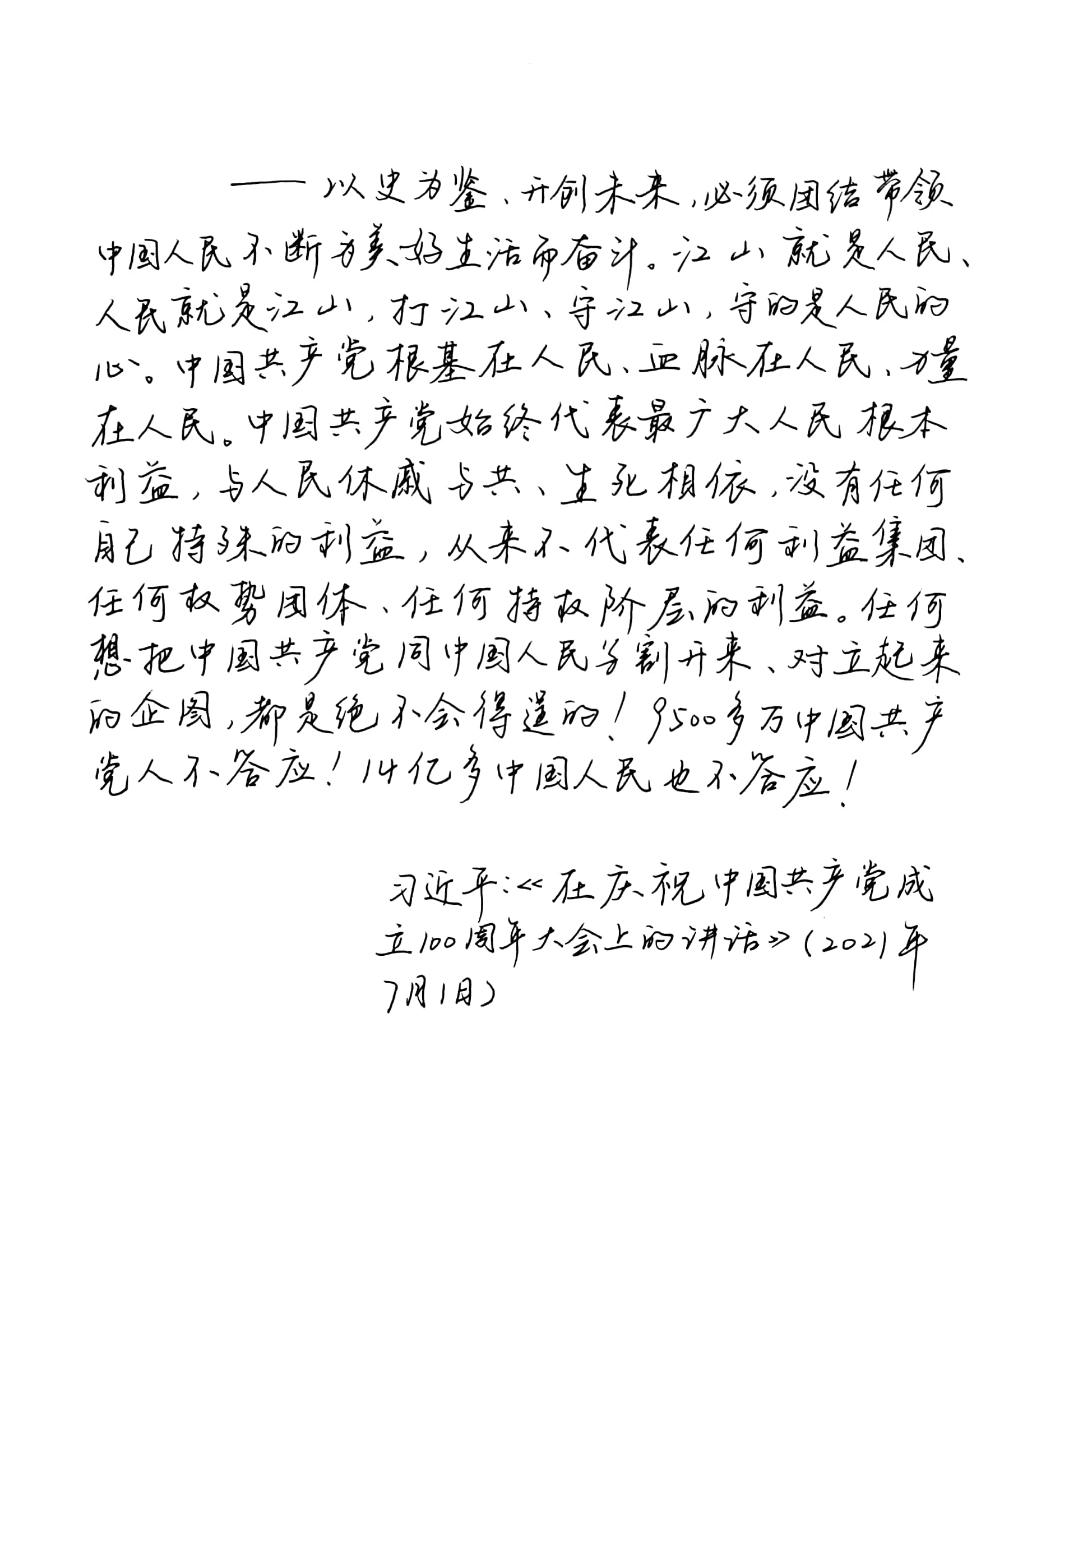 ——以史为鉴、开创未来,必须团结带领
中国人民不断为美好生活而奋斗。江山就是人民、
人民就是江山,打江山、守江山,守的是人民的
心。中国共产党根基在人民、血脉在人民、力量
在人民。中国共产党始终代表最广大人民根本
利益,与人民休戚与共、生死相依,没有任何
自己特殊的利益,从来不代表任何利益集团、
任何权势团体、任何特权阶层的利益。任何
想把中国共产党同中国人民分割开来、对立起来
的企图,都是绝不会得逞的!9500多万中国共产
党人不答应!14亿多中国人民也不答应!
习近平:《在庆祝中国共产党成
立100周年大会上的讲话》(2021年
7月1日)